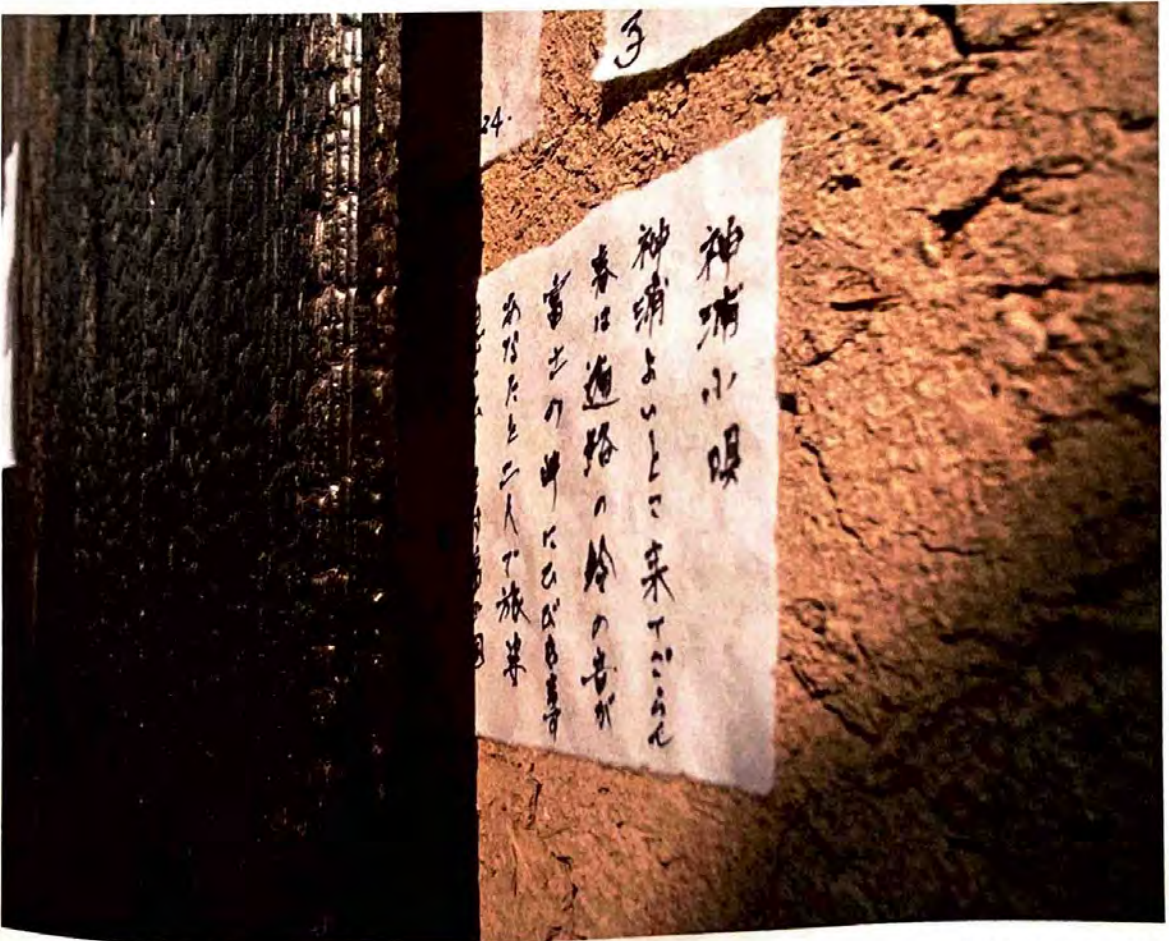 子
24.
神浦小唄
神浦よいとこ来てごらん
春は遍路の鈴の音が
富士の岬にひび
あなたと二人で旅